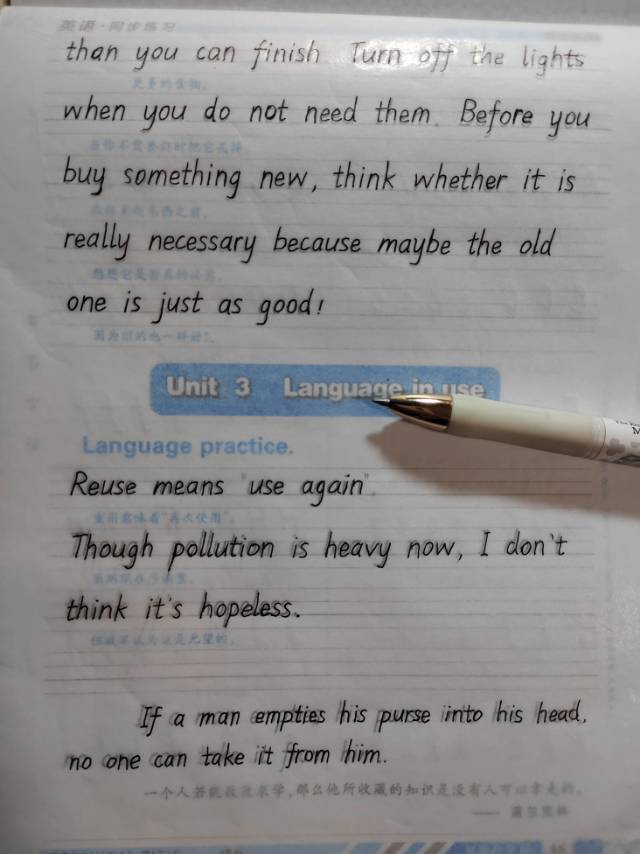 英语·同步练习
than you can finish. Turn off the lights
更多的食物。
when you do not need them. Before you
当你不需要灯时把它关掉。
buy something new, think whether it is
really necessary because maybe the old
one is just as good!
因为旧的也一样好!
Unit 3 Language in use
Language practice.
Reuse means "use again".
重用意味着"再次使用"。
Though pollution is heavy now, I don't
think it's hopeless.
但我不认为这是无望的。
If a man empties his purse into his head,
no one can take it from him.
一个人若能倾囊求学,那么他所收藏的知识是没有人可以拿走的。